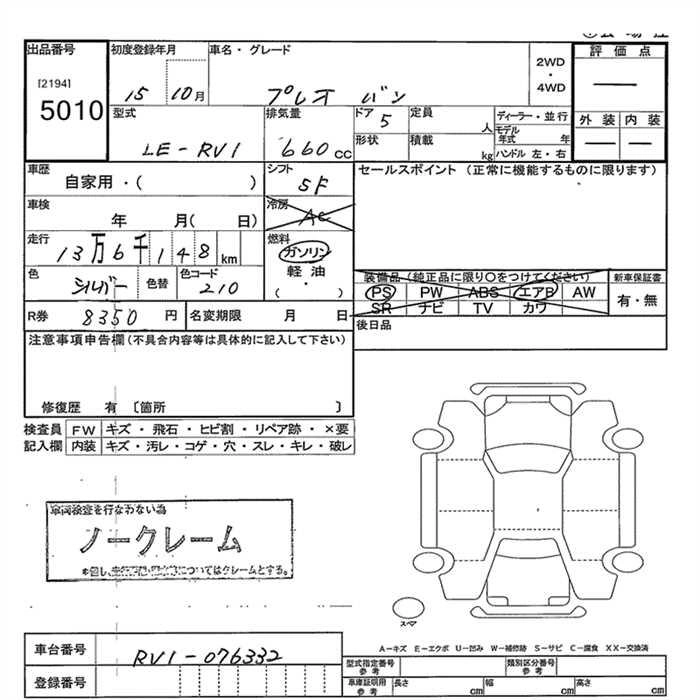 出品番号
[2194]
5010
初度登録年月
15 10月
車名・グレード
プレオ バン
2WD
・
4WD
評価点
―
外装 内装
― ―
型式
LE-RV1
排気量
660 cc
ドア
5
形状
定員
人
積載
kg
ディーラー・並行
モデル年式 年
ハンドル 左・右
車歴
自家用・( )
シフト
5F
セールスポイント (正常に機能するものに限ります)
車検
年 月( 日)
冷房
AC
走行
13万6千148km
燃料
ガソリン
軽油
( ・ )
色
シルバー
色替
色コード
210
装備品 (純正品に限り○をつけてください)
PS PW ABS エアB AW
SR ナビ TV カワ
新車保証書
有・無
R券 8350 円
名変期限 月 日
後日品
注意事項申告欄(不具合内容等は具体的に記入して下さい)
修復歴 有 〔箇所 〕
検査員
記入欄
FW キズ・飛石・ヒビ割・リペア跡・×要
内装 キズ・汚レ・コゲ・穴・スレ・キレ・破レ
車両検査を行なわない為
ノークレーム
についてはクレームとする。
スペア
A-キズ E-エクボ U-凹み W-補修跡 S-サビ C-腐食 XX-交換済
車台番号
RV1-076332
登録番号
型式指定番号
参考
類別区分番号
参考
車庫証明用
参考
長さ cm
幅 cm
高さ cm